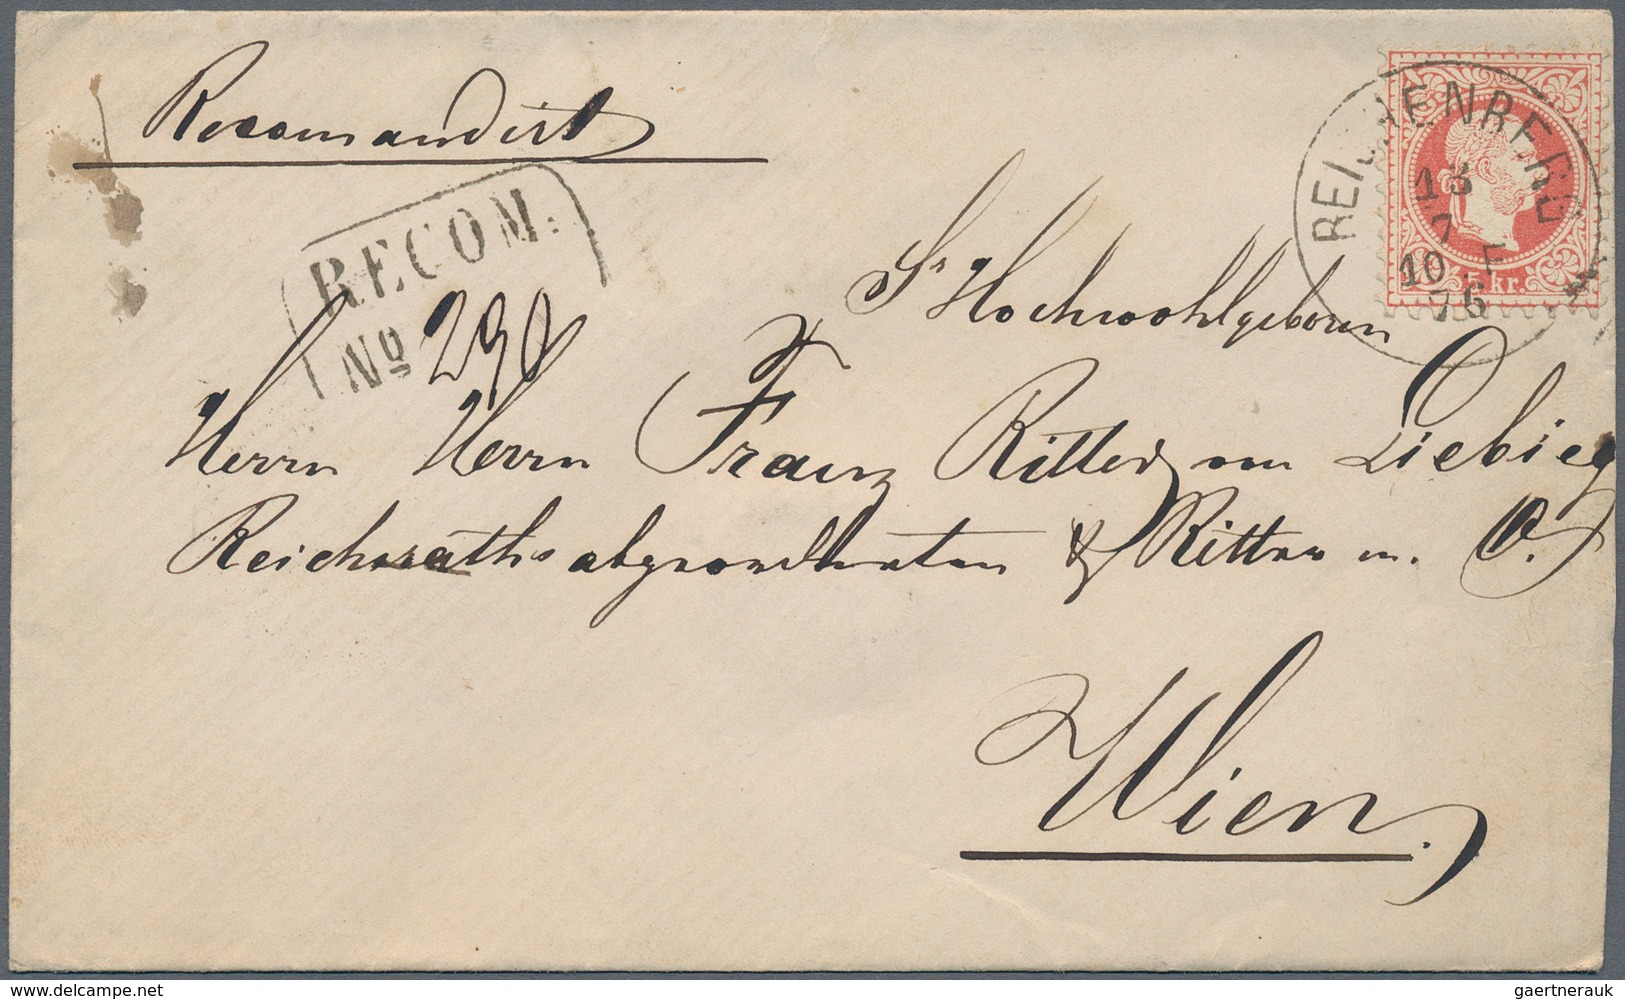 Recomandirt
RECOM.
No 290
REICHENBERG
13
7
10 F
76
5 kr.
Sr Hochwohlgeboren
Herrn Herrn Franz Ritter von Liebieg
Reichsrathsabgeordneten & Ritter m. O.
Wien.
www.delcampe.net
gaertnerauk